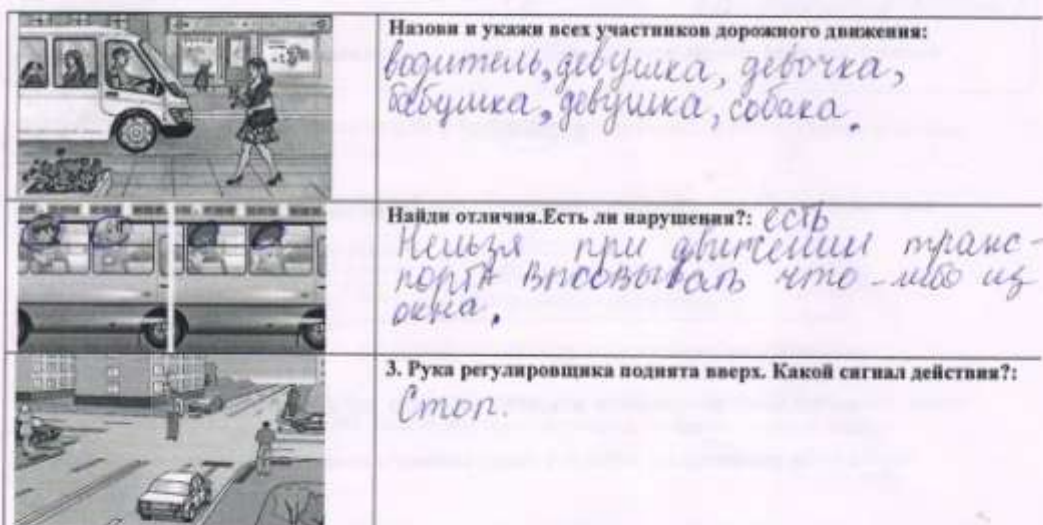 Назови и укажи всех участников дорожного движения:
водитель, девушка, девочка,
бабушка, девушка, собака.
Найди отличия.Есть ли нарушения?: есть
Нельзя при движении транс-
порта высовывать что-либо из
окна.
3. Рука регулировщика поднята вверх. Какой сигнал действия?:
Стоп.